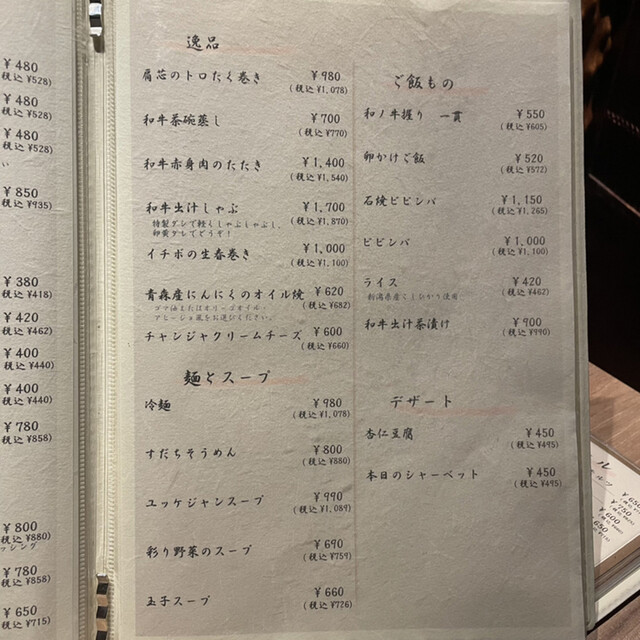 ¥480
税込 ¥528)
¥480
税込 ¥528)
¥480
税込 ¥528)
い
¥850
税込 ¥935)
¥380
税込 ¥418)
¥420
税込 ¥462)
¥400
税込 ¥440)
¥400
税込 ¥440)
¥780
税込 ¥858)
¥800
税込 ¥880)
ッシング
¥780
税込 ¥858)
¥650
税込 ¥715)
逸品
肩芯のトロたく巻き ¥980
(税込 ¥1,078)
和牛茶碗蒸し ¥700
(税込 ¥770)
和牛赤身肉のたたき ¥1,400
(税込 ¥1,540)
和牛出汁しゃぶ ¥1,700
(税込 ¥1,870)
特製ダシで軽くしゃぶしゃぶし、
卵黄ダレでどうぞ!
イチボの生春巻き ¥1,000
(税込 ¥1,100)
青森産にんにくのオイル焼 ¥620
(税込 ¥682)
ゴマ油またはオリーブオイル・
アヒージョ風をお選びください。
チャンジャクリームチーズ ¥600
(税込 ¥660)
麺とスープ
冷麺 ¥980
(税込 ¥1,078)
すだちそうめん ¥800
(税込 ¥880)
ユッケジャンスープ ¥990
(税込 ¥1,089)
彩り野菜のスープ ¥690
(税込 ¥759)
玉子スープ ¥660
(税込 ¥726)
ご飯もの
和ノ牛握り 一貫 ¥550
(税込 ¥605)
卵かけご飯 ¥520
(税込 ¥572)
石焼ビビンバ ¥1,150
(税込 ¥1,265)
ビビンバ ¥1,000
(税込 ¥1,100)
ライス ¥420
(税込 ¥462)
新潟県産こしひかり使用
和牛出汁茶漬け ¥900
(税込 ¥990)
デザート
杏仁豆腐 ¥450
(税込 ¥495)
本日のシャーベット ¥450
(税込 ¥495)
ル
¥650
¥750
¥600
¥650